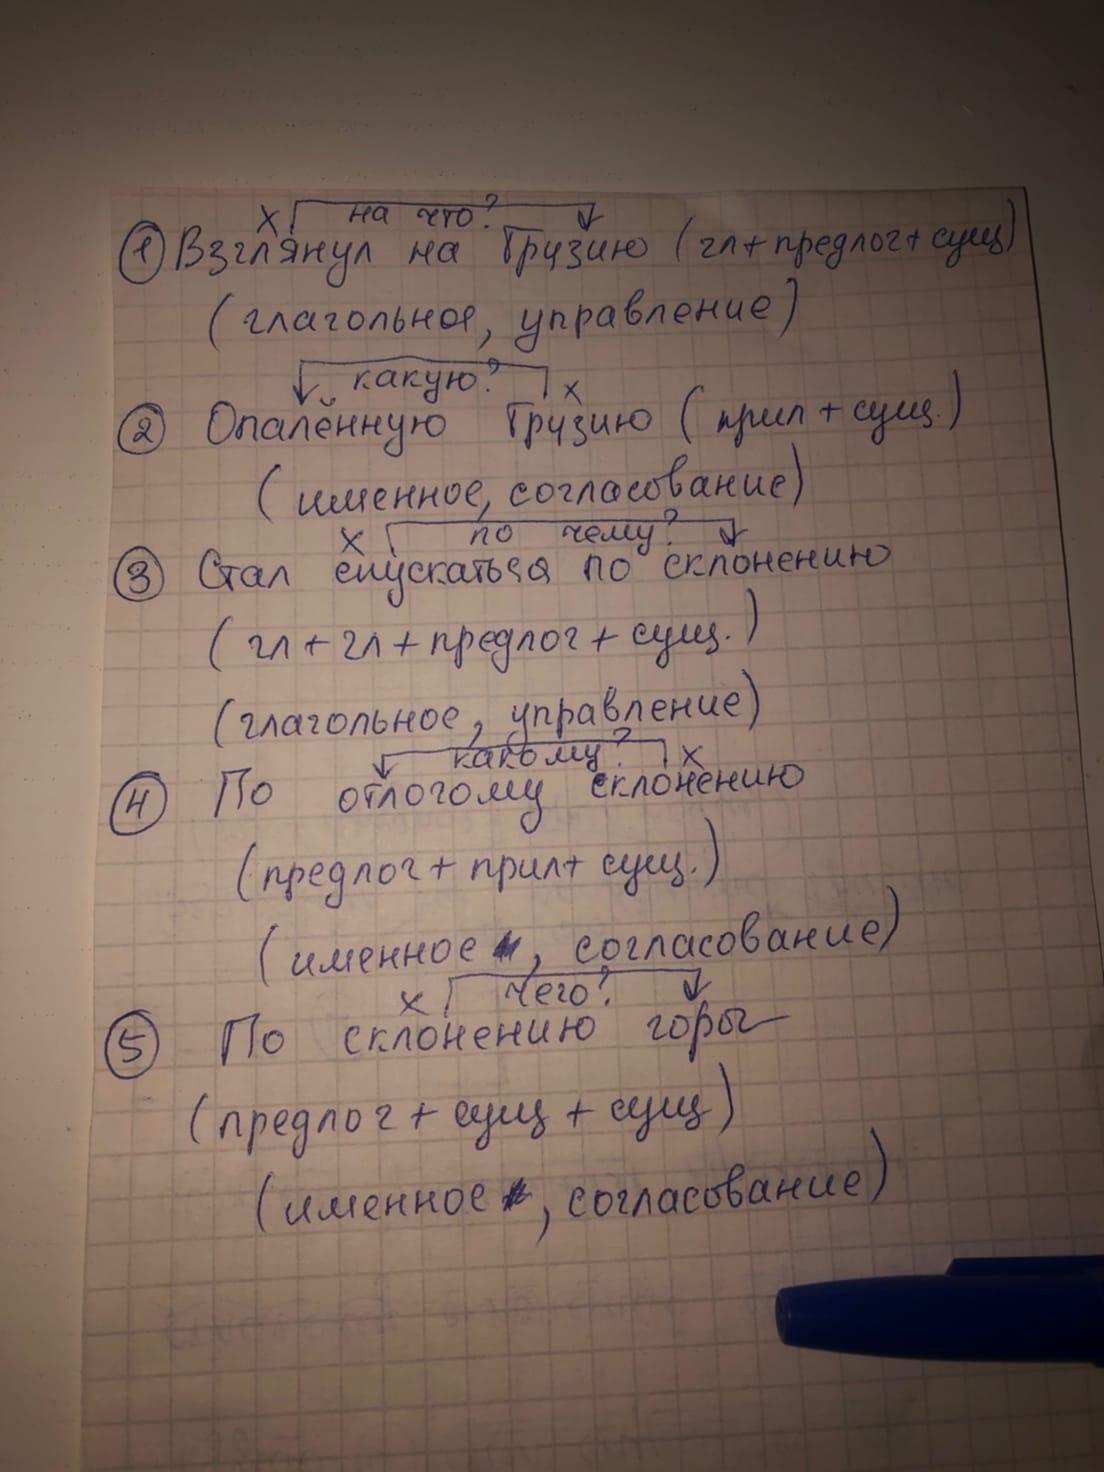 х на что?
① Взглянул на Грузию (гл+предлог+сущ)
(глагольное, управление)
какую? х
② Опалённую Грузию (прил + сущ.)
(именное, согласование)
х по чему?
③ Стал спускаться по склонению
(гл + гл + предлог + сущ.)
(глагольное, управление)
какому? х
④ По отлогому склонению
(предлог + прил+ сущ.)
(именное, согласование)
х чего?
⑤ По склонению горы
(предлог + сущ + сущ)
(именное, согласование)